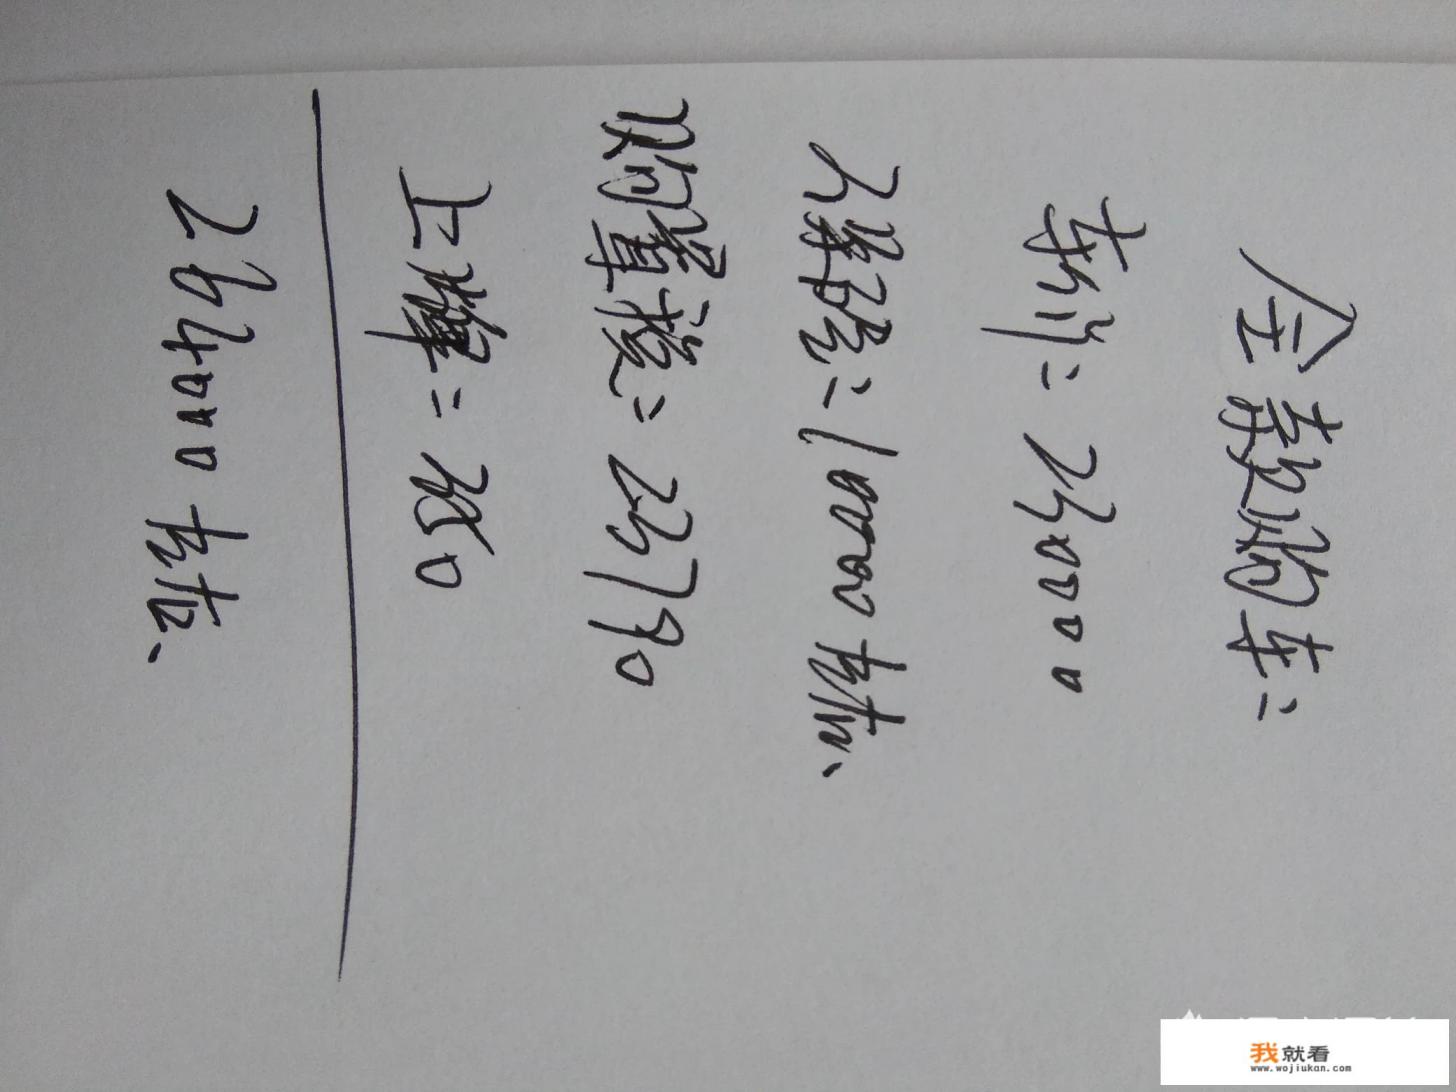 全款购车:
车价:230000
保险:10000左右、
购置税:23790
上牌:
264000左右、
我就看
www.wojiukan.com